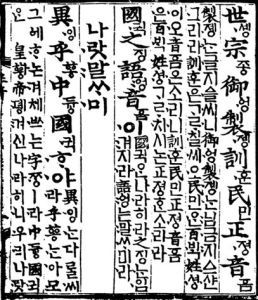 世솅宗조ᇰ御ᅌᅥᆼ製졩訓훈民민正져ᇰ音ᅙᅳᆷ
製졩는글지ᅀᅳᆯ씨니御ᅌᅥᆼ製졩는님금지ᅀᅳ샨
그리라訓훈은ᄀᆞᄅᆞ칠씨오民민ᄋᆞᆫ百ᄇᆡᆨ姓셔ᇰ
이오音ᅙᅳᆷ은소리니訓훈民민正져ᇰ音ᅙᅳᆷ
은百ᄇᆡᆨ姓셔ᇰᄀᆞᄅᆞ치시논正져ᇰᄒᆞᆫ소리라
國귁之징語ᅌᅥᆼ音ᅙᅳᆷ이
國귁ᄋᆞᆫ나라히라之징ᄂᆞᆫ입
겨지라語ᅌᅥᆼ는말ᄊᆞ미라
나랏말ᄊᆞ미
異잉乎ᅘᅩᆼ中듀ᇰ國귁ᄒᆞ야
異잉ᄂᆞᆫ다ᄅᆞᆯ씨라乎ᅘᅩᆼᄂᆞᆫ아모
그ᅌᅦᄒᆞ논겨체ᄡᅳ는字ᄍᆞᆼㅣ라中듀ᇰ國귁
ᄋᆞᆫ皇ᅘᅪᇰ帝뎽겨신나라히니우리나랏